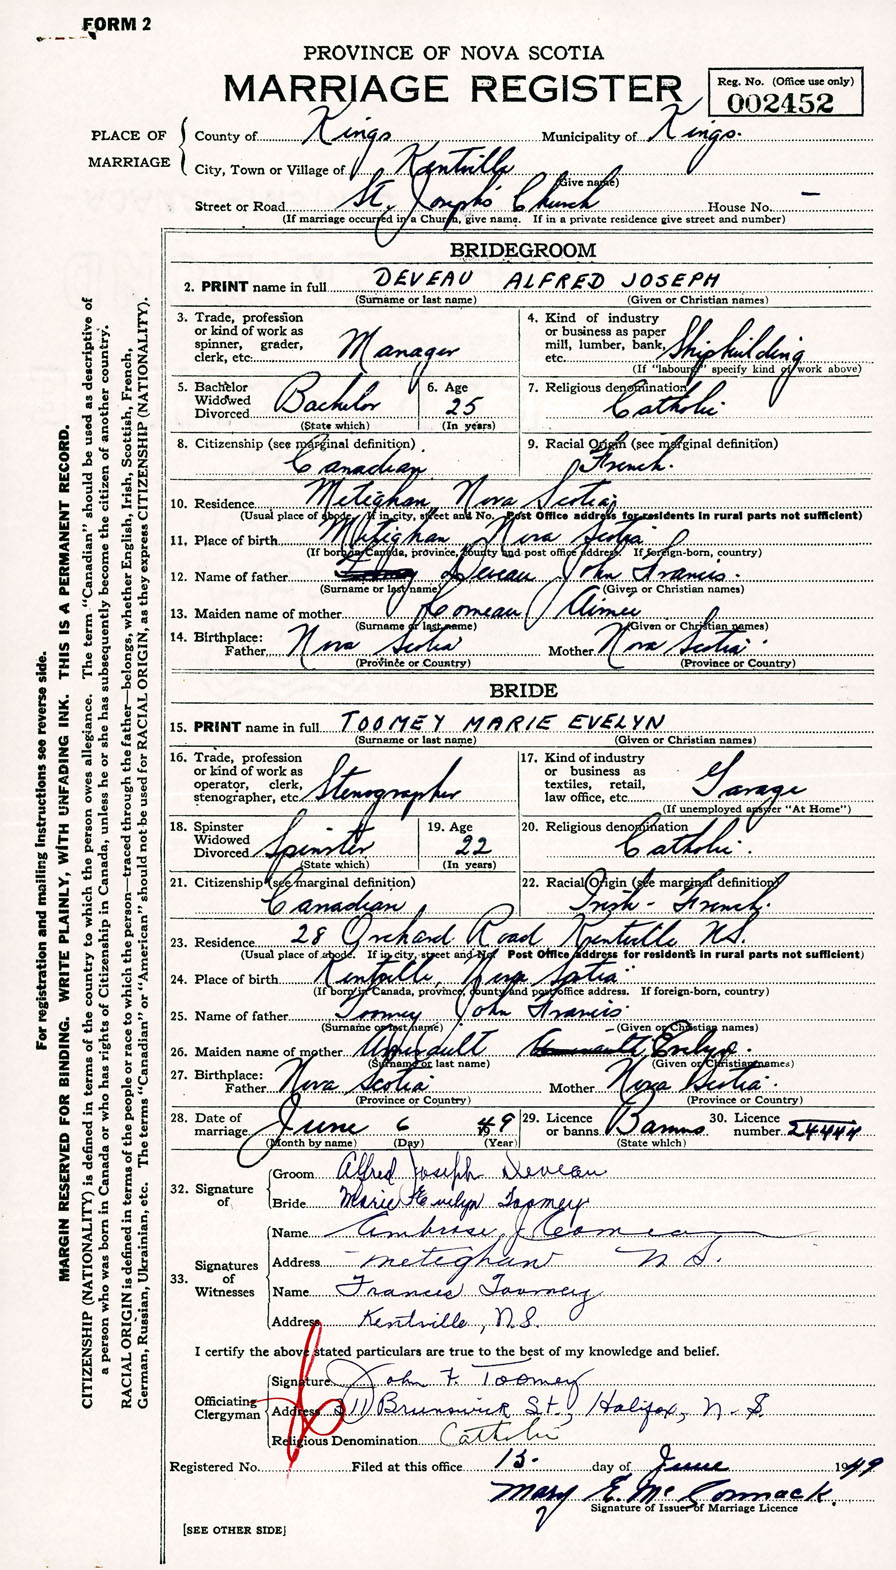 FORM 2
PROVINCE OF NOVA SCOTIA
MARRIAGE REGISTER
Reg. No. (Office use only)
002452
PLACE OF MARRIAGE
County of Kings Municipality of Kings.
City, Town or Village of Kentville
(Give name)
Street or Road St. Joseph's Church House No. —
(If marriage occurred in a Church, give name. If in a private residence give street and number)
BRIDEGROOM
2. PRINT name in full DEVEAU ALFRED JOSEPH
(Surname or last name) (Given or Christian names)
3. Trade, profession or kind of work as spinner, grader, clerk, etc. Manager
4. Kind of industry or business as paper mill, lumber, bank, etc. Shipbuilding
(If "labourer" specify kind of work above)
5. Bachelor Widowed Divorced Bachelor
(State which)
6. Age 25
(In years)
7. Religious denomination Catholic
8. Citizenship (see marginal definition) Canadian
9. Racial Origin (see marginal definition) French.
10. Residence Meteghan Nova Scotia
(Usual place of abode. If in city, street and No. Post Office address for residents in rural parts not sufficient)
11. Place of birth Meteghan Nova Scotia
(If born in Canada, province, county and post office address. If foreign-born, country)
12. Name of father Deveau John Francis.
(Surname or last name) (Given or Christian names)
13. Maiden name of mother Comeau Aimee
(Surname or last name) (Given or Christian names)
14. Birthplace: Father Nova Scotia Mother Nova Scotia
(Province or Country) (Province or Country)
BRIDE
15. PRINT name in full TOOMEY MARIE EVELYN
(Surname or last name) (Given or Christian names)
16. Trade, profession or kind of work as operator, clerk, stenographer, etc. Stenographer
17. Kind of industry or business as textiles, retail, law office, etc. Garage
(If unemployed answer "At Home")
18. Spinster Widowed Divorced Spinster
(State which)
19. Age 22
(In years)
20. Religious denomination Catholic.
21. Citizenship (see marginal definition) Canadian
22. Racial Origin (see marginal definition) Irish - French.
23. Residence 28 Orchard Road Kentville N.S.
(Usual place of abode. If in city, street and No. Post Office address for residents in rural parts not sufficient)
24. Place of birth Kentville, Nova Scotia
(If born in Canada, province, county and post office address. If foreign-born, country)
25. Name of father Toomey John Francis
(Surname or last name) (Given or Christian names)
26. Maiden name of mother Arsenault Evelyn.
(Surname or last name) (Given or Christian names)
27. Birthplace: Father Nova Scotia Mother Nova Scotia.
(Province or Country) (Province or Country)
28. Date of marriage June 6 49
(Month by name) (Day) (Year)
29. Licence or banns Banns
(State which)
30. Licence number 24444
32. Signature of
Groom Alfred Joseph Deveau
Bride Marie Evelyn Toomey
33. Signatures of Witnesses
Name Ambrose J Comeau
Address Meteghan N.S.
Name Francis Toomey
Address Kentville, N.S.
I certify the above stated particulars are true to the best of my knowledge and belief.
Officiating Clergyman
Signature John F. Toomey
Address 311 Brunswick St., Halifax, N.S.
Religious Denomination Catholic
Registered No. Filed at this office 15. day of June 1949
Mary E. McCormack.
Signature of Issuer of Marriage Licence
[SEE OTHER SIDE]
For registration and mailing instructions see reverse side.
MARGIN RESERVED FOR BINDING. WRITE PLAINLY, WITH UNFADING INK. THIS IS A PERMANENT RECORD.
CITIZENSHIP (NATIONALITY) is defined in terms of the country to which the person owes allegiance. The term "Canadian" should be used as descriptive of
a person who was born in Canada or who has rights of Citizenship in Canada, unless he or she has subsequently become the citizen of another country.
RACIAL ORIGIN is defined in terms of the people or race to which the person—traced through the father—belongs, whether English, Irish, Scottish, French,
German, Russian, Ukrainian, etc. The terms "Canadian" or "American" should not be used for RACIAL ORIGIN, as they express CITIZENSHIP (NATIONALITY).